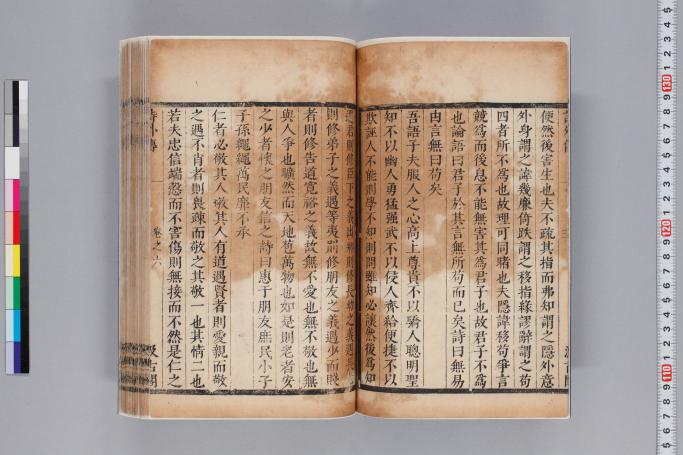 便然後害生也夫不疏其指而弗知謂之隱外意
外身謂之諱幾廉倚跌謂之移指緣謬辭謂之苟
四者所不爲也故理可同睹也夫隱諱移苟爭言
競爲而後息不能無害其爲君子也故君子不爲
也論語曰君子於其言無所苟而已矣詩曰無易
由言無曰苟矣
吾語子夫服人之心高上尊貴不以驕人聰明聖
知不以幽人勇猛强武不以侵人齊給便捷不以
欺誣人不能則學不知則問雖知必讓然後爲知
遇君則修臣下之義出鄉則修長幼之義遇長
則修弟子之義遇等夷則修朋友之義遇少而賤
者則修告道寬裕之義故無不愛也無不敬也無
與人爭也曠然而天地苞萬物也如是則老者安
之少者懷之朋友信之詩曰惠于朋友庶民小子
子孫繩繩萬民靡不承
仁者必敬其人敬其人有道遇賢者則愛親而敬
之遇不肖者則畏疎而敬之其敬一也其情二也
若夫忠信端慤而不害傷則無接而不然是仁之
詩外傳
卷之六
汲古閣